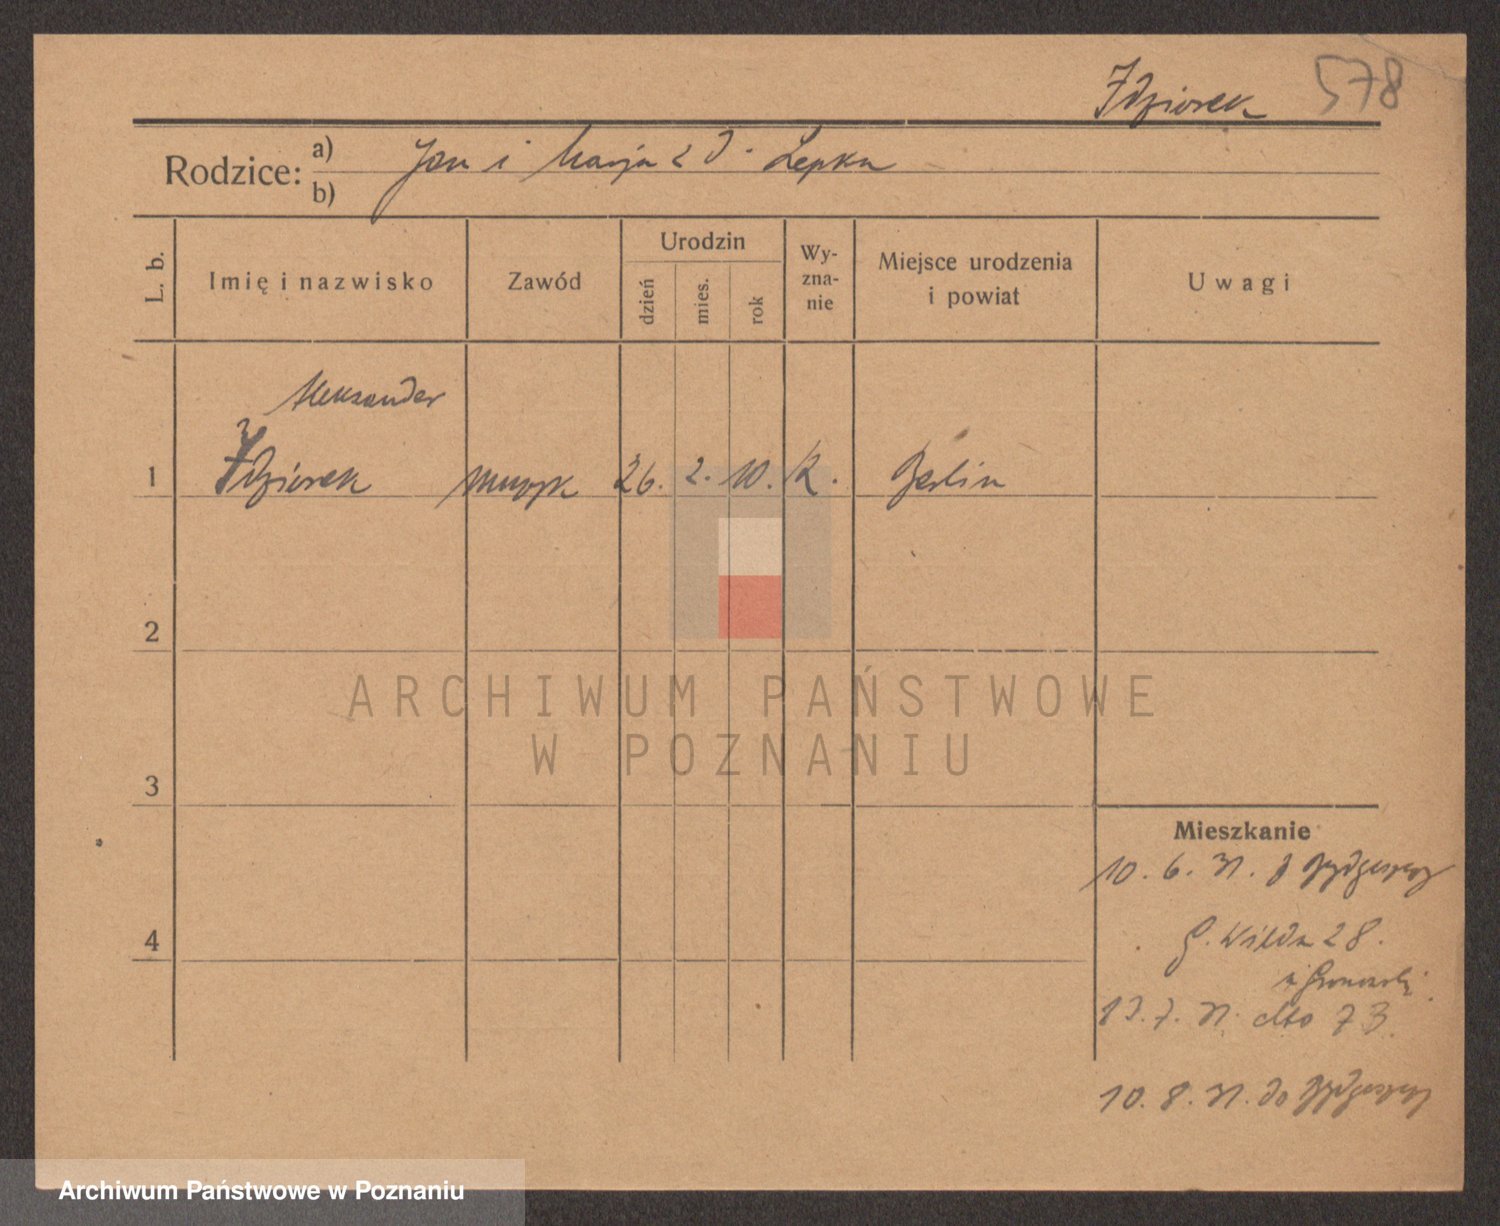 Idziorek 578
Rodzice: a) Jan i Marja z d. Lepka
b)
L. b.
Imię i nazwisko
Zawód
Urodzin
dzień
mies.
rok
Wy-
zna-
nie
Miejsce urodzenia
i powiat
Uwagi
Aleksander
1 Idziorek muzyk 26. 2. 10. K. Berlin
2
3
4
Mieszkanie
10. 6. 31. z Bydgoszczy
G. Wilda 28.
13. 7. 31. dto 73.
10. 8. 31. do Bydgoszczy
ARCHIWUM PAŃSTWOWE
W POZNANIU
Archiwum Państwowe w Poznaniu